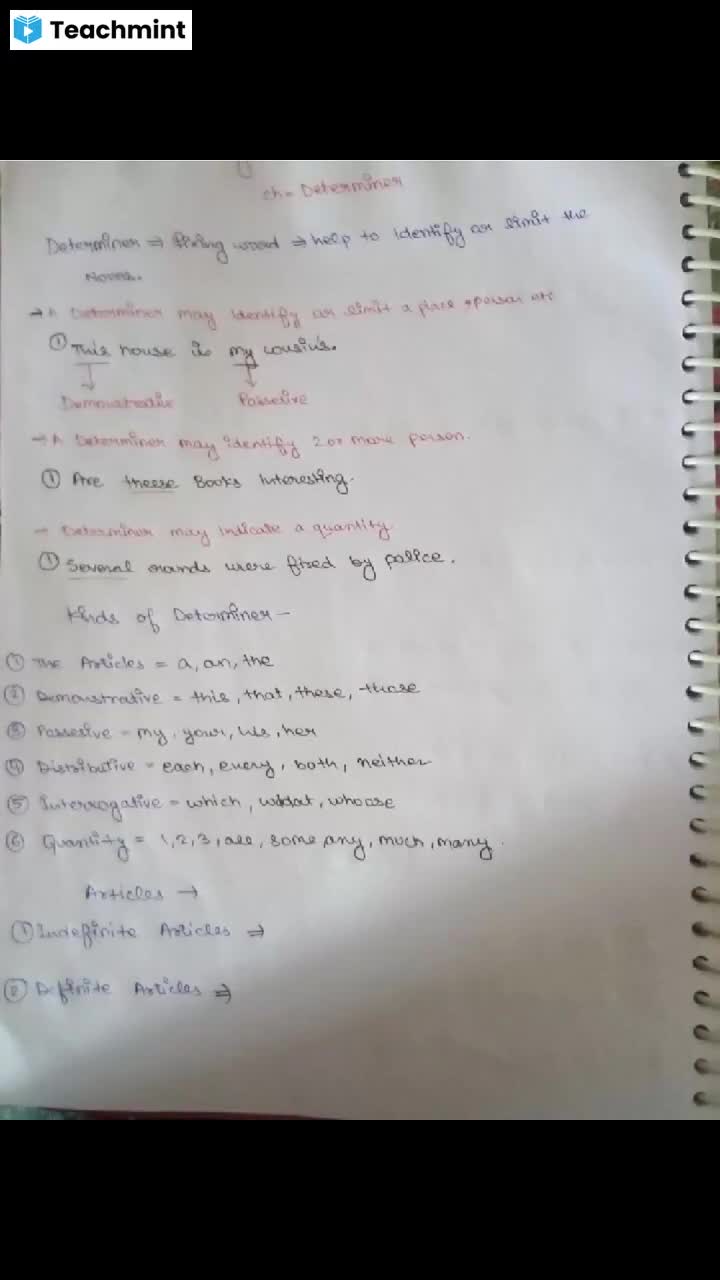 Teachmint
ch- Determiner
Determiner ⇒ fixing word ⇒ help to identify or limit the
Noun.
→ A Determiner may identify or limit a place, person etc
① This house is my cousin's.
Demonstrative Possesive
→ A Determiner may identify 2 or more person.
① Are theese Books interesting.
→ Determiner may indicate a quantity
① Several rounds were fired by police.
Kinds of Determiner -
① The Articles = a, an, the
② Demonstrative = this, that, these, those
③ Possesive = my, your, his, her
④ Distributive = each, every, both, neither
⑤ Interrogative = which, what, whose
⑥ Quantity = 1, 2, 3, all, some, any, much, many.
Articles →
① Indefinite Articles ⇒
② Definite Articles ⇒